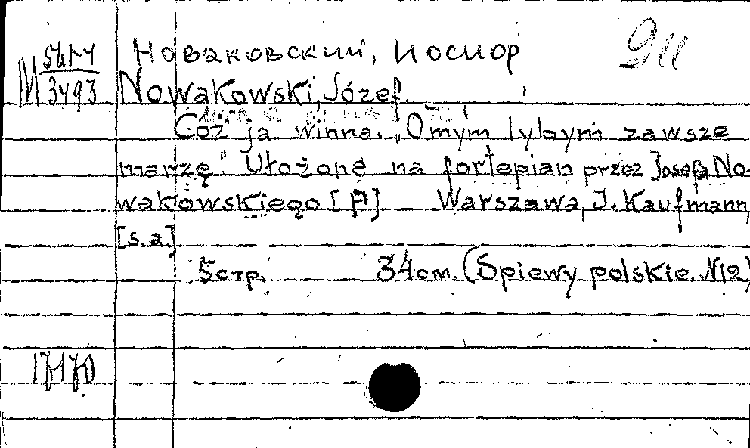 Новаковский, Иосиор
M 3493 Nowakowski, Józef
Cóż ja winna. „O mym lubym zawsze
marzę" Ułożone na fortepian przez Josefa No-
wakowskiego [P] Warszawa, J. Kaufmann,
[s.a.]
5 стр. 34 см. (Spiewy polskie. N12)
17170